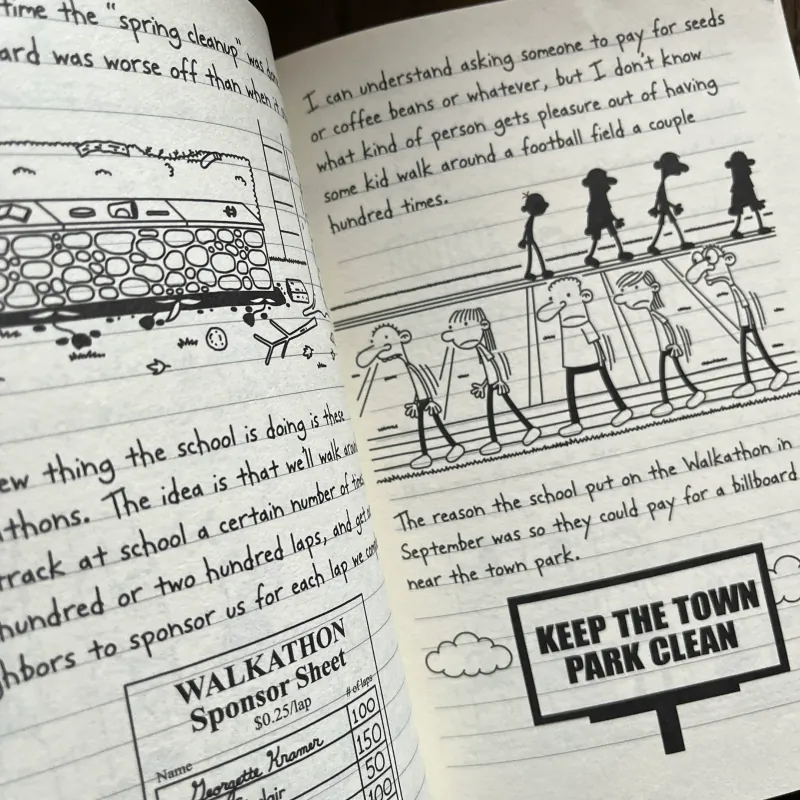 time the "spring cleanup" was
ard was worse off than when it
ew thing the school is doing is these
thons. The idea is that we'll walk
track at school a certain number of
hundred or two hundred laps, and get
hbors to sponsor us for each lap we
WALKATHON
Sponsor Sheet
$0.25/lap
Name # of laps
Georgette Kramer 100
150
50
100
I can understand asking someone to pay for seeds
or coffee beans or whatever, but I don't know
what kind of person gets pleasure out of having
some kid walk around a football field a couple
hundred times.
The reason the school put on the Walkathon in
September was so they could pay for a billboard
near the town park.
KEEP THE TOWN
PARK CLEAN